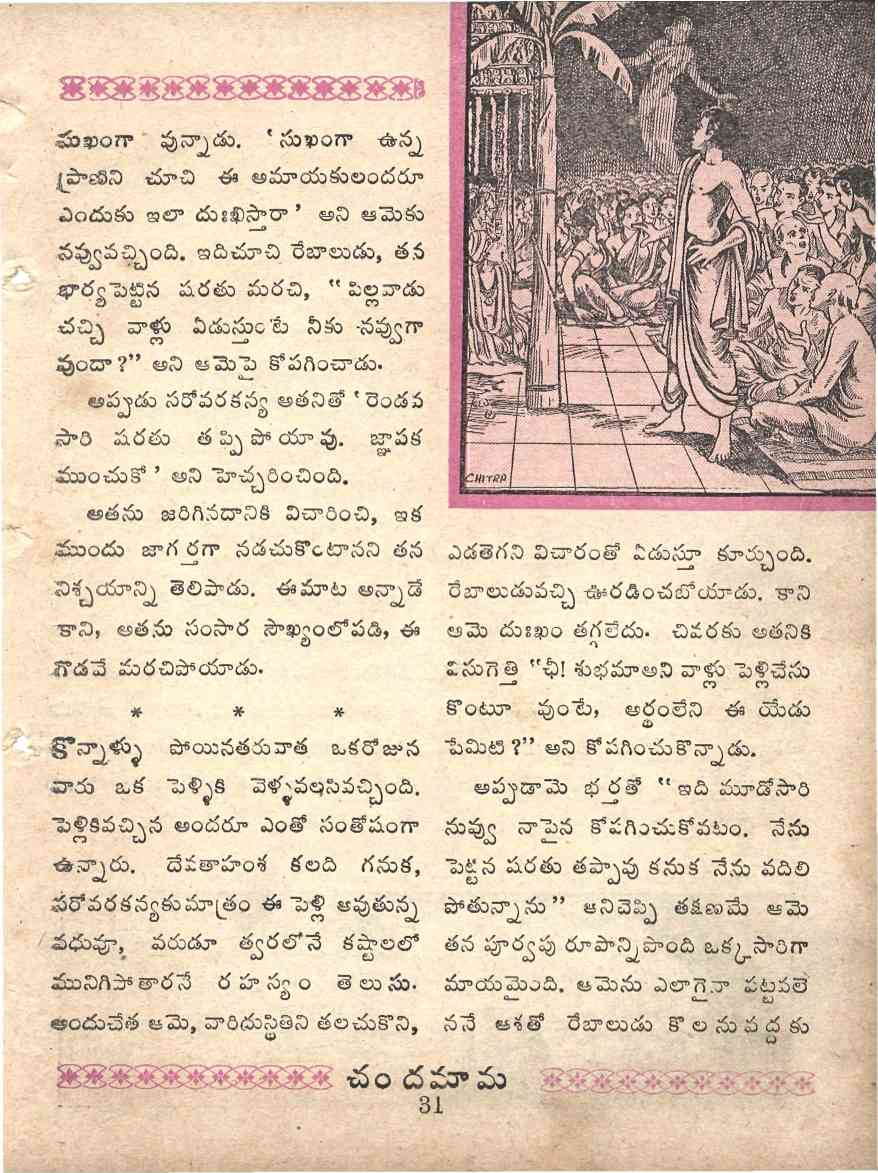 సుఖంగా వున్నాడు. ‘సుఖంగా ఉన్న
ప్రాణిని చూచి ఈ అమాయకులందరూ
ఎందుకు ఇలా దుఃఖిస్తారా’ అని ఆమెకు
నవ్వువచ్చింది. ఇదిచూచి రేబాలుడు, తన
భార్యపెట్టిన షరతు మరచి, “పిల్లవాడు
చచ్చి వాళ్లు ఏడుస్తుంటే నీకు నవ్వుగా
వుందా?” అని ఆమెపై కోపగించాడు.
అప్పుడు సరోవరకన్య అతనితో ‘రెండవ
సారి షరతు తప్పిపోయావు. జ్ఞాపక
ముంచుకో’ అని హెచ్చరించింది.
అతను జరిగినదానికి విచారించి, ఇక
ముందు జాగర్తగా నడచుకొంటానని తన
నిశ్చయాన్ని తెలిపాడు. ఈమాట అన్నాడే
కాని, అతను సంసార సౌఖ్యంలోపడి, ఈ
గొడవే మరచిపోయాడు.
* * *
కొన్నాళ్ళు పోయినతరువాత ఒకరోజున
వారు ఒక పెళ్ళికి వెళ్ళవలసివచ్చింది.
పెళ్లికివచ్చిన అందరూ ఎంతో సంతోషంగా
ఉన్నారు. దేవతాహంశ కలది గనుక,
సరోవరకన్యకుమాత్రం ఈ పెళ్లి అవుతున్న
వధువూ, వరుడూ త్వరలోనే కష్టాలలో
మునిగిపోతారనే రహస్యం తెలుసు.
అందుచేత ఆమె, వారిదుస్థితిని తలచుకొని,
CHITRA
ఎడతెగని విచారంతో ఏడుస్తూ కూర్చుంది.
రేబాలుడువచ్చి ఊరడించబోయాడు. కాని
ఆమె దుఃఖం తగ్గలేదు. చివరకు అతనికి
విసుగెత్తి “ఛీ! శుభమాఅని వాళ్లు పెళ్లిచేసు
కొంటూ వుంటే, అర్థంలేని ఈ యేడు
పేమిటి?” అని కోపగించుకొన్నాడు.
అప్పుడామె భర్తతో “ఇది మూడోసారి
నువ్వు నాపైన కోపగించుకోవటం. నేను
పెట్టిన షరతు తప్పావు కనుక నేను వదిలి
పోతున్నాను” అనిచెప్పి తక్షణమే ఆమె
తన పూర్వపు రూపాన్నిపొంది ఒక్కసారిగా
మాయమైంది. ఆమెను ఎలాగైనా పట్టవలె
ననే ఆశతో రేబాలుడు కొలనువద్దకు
చందమామ
31